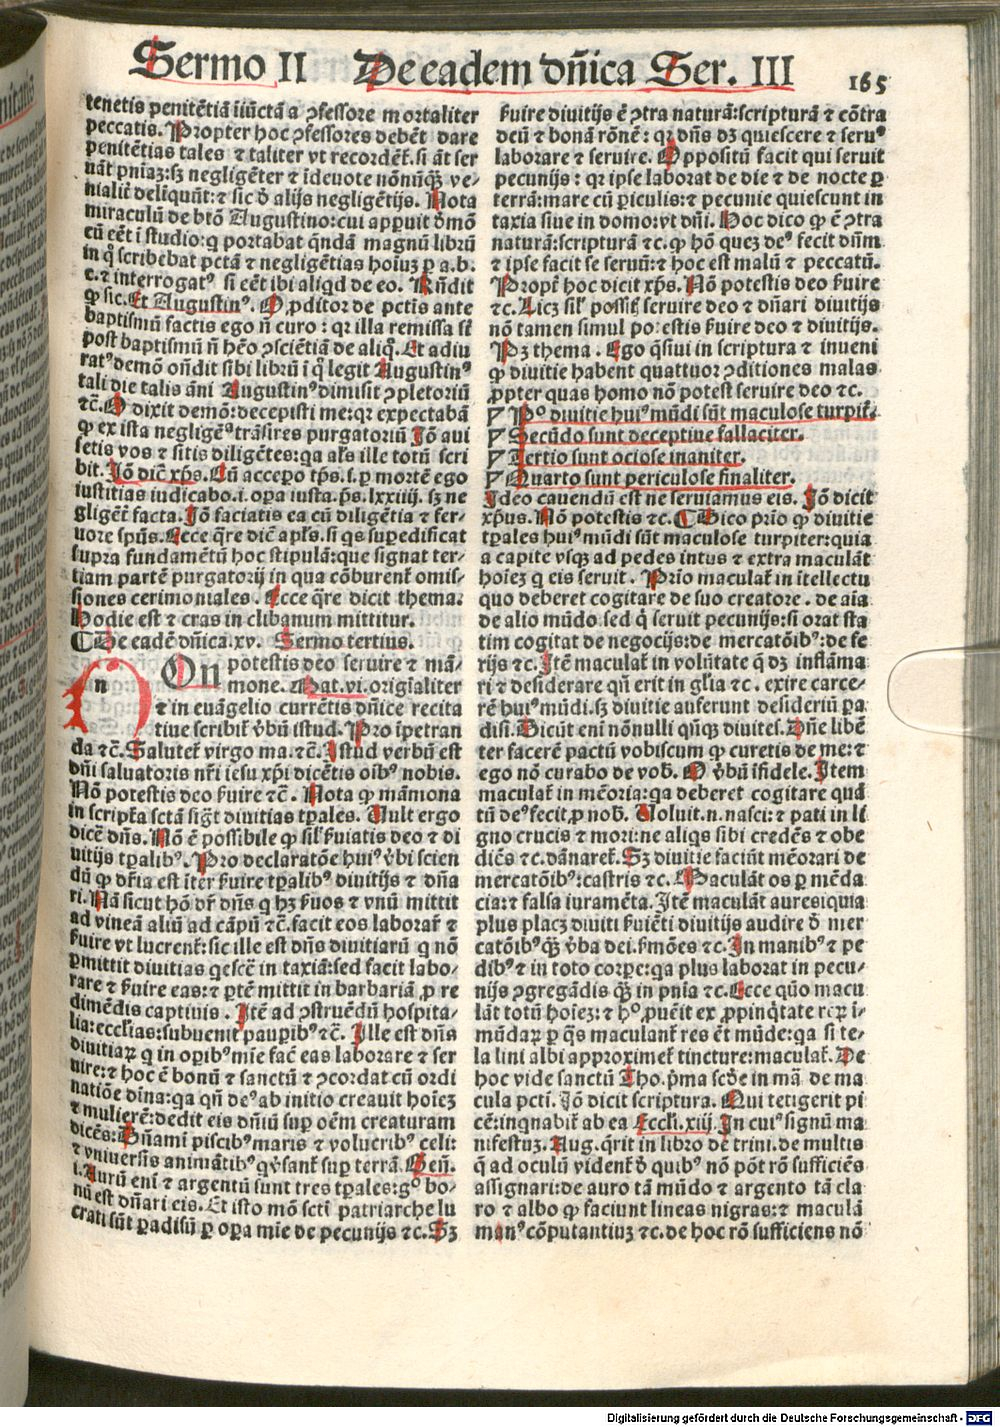 Sermo II De eadem dñica Ser. III
165
tenetis penitẽtiã iiũctã a ꝯfessore mortaliter
peccatis. Propter hoc ꝯfessores debẽt dare
penitẽtias tales ⁊ taliter vt recordẽt᷑. si āt ser
uãt pniaȝ: sȝ negligẽter ⁊ ideuote nõnũꝗȝ ve-
nialit᷑ deliquũt: ⁊ sic ð alijs negligẽtijs. Nota
miraculũ de btõ Augustino: cui apparuit ðmõ
cũ eẽt ĩ studio: q portabat qñdã magnũ librũ
in q̊ scribebat pctã ⁊ negligẽtias hoĩuȝ ꝑ a.b.
c. ⁊ interrogatꝰ si eẽt ibi aliqd de eo. Rñdit
ꝙ sic. Et Augustinꝰ. O ꝓditor de pctis ante
baptismũ factis ego ñ curo: qꝛ illa remissa st̃
post baptismũ ñ hẽo ꝯsciẽtiã de aliq̊. Et adiu
ratꝰ demõ oñdit sibi librũ ĩ q̊ legit Augustinꝰ
tali die talis ãni ĩ Augustinꝰ dimisit ꝯpletoriũ
⁊c̃. O dixit demõ: decepisti me: qꝛ expectabã
ꝙ ex ista negligẽᵃ trãsires purgatoriũ Jõ aui
setis vos ⁊ sitis diligẽtes: qa als ille totũ scri
bit. Jõ dic̃ xp̃s. Cũ accepero tp̃s. i. p mortẽ ego
iustitias iudicabo. i. opa iusta. ps. lxxiiij. sȝ ne
gligẽt᷑ facta. Jõ faciatis ea cũ diligẽtia ⁊ fer-
uore spũs. Ecce qre dic̃ apl̃s. si qs supedificat
supra fundamẽtũ hoc stipulã: que signat ter-
tiam partẽ purgatorij in qua cõburent᷑ omis-
siones cerimoniales. Ecce q̃re dicit thema.
Hodie est ⁊ cras in clibanum mittitur.
¶ De eadẽ dñica. xv. Sermo tertius.
n
On potestis deo seruire ⁊ mã-
mone. Mat. vi. origĩaliter
⁊ in euãgelio currẽtis dñice recita
tiue scribit᷑ v̾bũ istud. Pro ĩpetran
da ⁊c̃. Salutet᷑ virgo ma. ⁊c̃. Istud verbũ est
dñi saluatoris nr̃i iesu xp̃i dicẽtis oĩbꝰ nobis.
Nõ potestis deo s̃uire ⁊c̃. Nota ꝙ mãmona
in scripr̃a sctã sigt̃ diuitias tpales. Vult ergo
dicẽ dñs. Nõ ẽ possibile ꝙ sil̃ s̃uiatis deo ⁊ di
uitijs tpalibꝰ. Pro declaratõe huiꝰ v̾bi scien
dũ ꝙ dr̃ia est ĩter s̃uire tpalibꝰ diuitijs ⁊ dña
ri. Nã sicut hõ dr̃ dñs q hȝ s̃uos ⁊ vnũ mittit
ad vineã aliũ ad cãpũ ⁊c̃. facit eos laborar᷑ ⁊
s̃uire vt lucrent᷑: sic ille est dñs diuitiarũ q nõ
ꝑmittit diuitias qescẽ in taxiã: sed facit labo-
rare ⁊ s̃uire eas: ⁊ ptẽ mittit in barbariã ꝓ re
dimẽdis captiuis. Jtẽ ad ꝯstruẽdũ hospita-
lia: ecclĩas: subuenit paupibꝰ ⁊c̃. Jlle est dñs
diuitiaꝝ q in opibꝰ mie fac̃ eas laborare ⁊ ser
uire: ⁊ hoc ẽ bonũ ⁊ sanctũ ⁊ ꝯcordat cũ ordi
natiõe dina: qa qñ deꝰ ab initio creauit hoĩeȝ
⁊ mulierẽ: dedit eis dñiũ sup oẽm creaturam
dicẽs: Dñami piscibꝰ maris ⁊ volucribꝰ celi:
⁊ vniuersis animãtibꝰ q v̾sant᷑ sup terrã. Geñ.
i. Aurũ eni ⁊ argentũ sunt tres tpales: gᵒ bo-
nũ est dñari eis. Et isto mõ scti patriarche lu
crati sũt paradisũ ꝑ opa mie de pecunijs ⁊c. Sȝ
s̃uire diuitijs ẽ ꝯtra naturã: scripturã ⁊ cõtra
deũ ⁊ bonã rõnẽ: qꝛ dñs dȝ quiescere ⁊ seruꝰ
laborare ⁊ seruire. Oppositũ facit qui seruit
pecunijs: qꝛ ipse laborat de die ⁊ de nocte ꝑ
terrã: mare cũ piculis: ⁊ pecunie quiescunt in
taxia siue in domo: vt dñi. Hoc dico ꝙ ẽ ꝯtra
naturã: scripturã ⁊c. ꝙ hõ queȝ deꝰ fecit dñm
⁊ ipse facit se seruũ: ⁊ hoc est malũ ⁊ peccatũ.
Propt᷑ hoc dicit xp̃s. Nõ potestis deo s̃uire
⁊c. Licȝ sil̃ possitȝ seruire deo ⁊ dñari diuitijs
nõ tamen simul potestis s̃uire deo ⁊ diuitijs.
Pȝ thema. Ego q̃siui in scriptura ⁊ inueni
ꝙ diuitie habent quattuor ꝯditiones malas
ꝓpter quas homo nõ potest seruire deo ⁊c.
¶ Pᵒ diuitie huiꝰ mũdi sũt maculose turpit᷑.
¶ Secũdo sunt deceptiue fallaciter.
¶ Tertio sunt ociose inaniter.
¶ Quarto sunt periculose finaliter.
Jdeo cauendũ est ne seruiamus eis. Jõ dicit
xp̃us. Nõ potestis ⁊c. ¶ Dico prĩo ꝙ diuitie
tpales huiꝰ mũdi sũt maculose turpiter: quia
a capite vsqȝ ad pedes intus ⁊ extra maculãt
hoĩeȝ q eis seruit. Prĩo maculat᷑ in ĩtellectu
quo deberet cogitare de suo creatore. de aĩa
de alio mũdo: sed q̊ seruit pecunijs: si orat sta
tim cogitat de negocijs: de mercatõibꝰ: de fe
rijs ⁊c. Jtẽ maculat᷑ in volũtate q̃ dȝ inflãma
ri ⁊ desiderare qñ erit in gl̃ia ⁊c. exire carce-
rẽ huiꝰ mũdi. sȝ diuitie auferunt desideriũ pa
disi. Dicũt eni nõnulli qñqȝ diuites. Dñe libẽ
ter facerẽ pactũ vobiscum ꝙ curetis de me: ⁊
ego nõ curabo de vob̾. O v̾bũ ĩfidele. Jtem
maculat᷑ in mẽoria: qa deberet cogitare quã
tũ deꝰ fecit ꝓ nob̾. Voluit. n. nasci: ⁊ pati in li
gno crucis ⁊ mori: ne aliqs sibi credẽs ⁊ obe
diẽs ⁊c. dãnaret᷑. Sȝ diuitie faciũt mẽorari de
mercatõibꝰ: castris ⁊c. Maculãt os p mẽda
cia: ⁊ falsa iuramẽta. Jtẽ maculãt aures: quia
plus placȝ diuiti s̃uiẽti diuitijs audire ð mer
catõibꝰ ꝗȝ v̾ba dei. s̃mões ⁊c. Jn manibꝰ ⁊ pe
dibꝰ ⁊ in toto corpe: qa plus laborat in pecu-
nijs ꝯgregãdis ꝗȝ in pnia ⁊c. Ecce quõ macu
lãt totũ hoĩeȝ: ⁊ hᵒ ꝓuẽit ex ꝓpinq̃tate reꝝ ĩ-
mũdaꝝ ꝑ q̃s maculant᷑ res ẽt mũde: qa si te-
la lini albi approximet᷑ tincture: maculat᷑. De
hoc vide sanctũ Tho. pma scðe in mã de ma
cula pcti. Jõ dicit scriptura. Qui tetigerit pi
cẽ: inqnabit᷑ ab ea Eccl̃i. xiij. Jn cuiꝰ signũ ma
nifestuȝ. Aug. q̃rit in libro de trini. de multis
q̃ ad oculũ vident᷑ ð quibꝰ nõ põt rõ sufficiẽs
assignari: de auro tã mũdo ⁊ argento tã cla
ro ⁊ albo ꝙ faciunt lineas nigras: ⁊ maculã
manꝰ cõputantiuȝ ⁊c. de hoc rõ sufficiens nõ
Digitalisierung gefördert durch die Deutsche Forschungsgemeinschaft - DFG